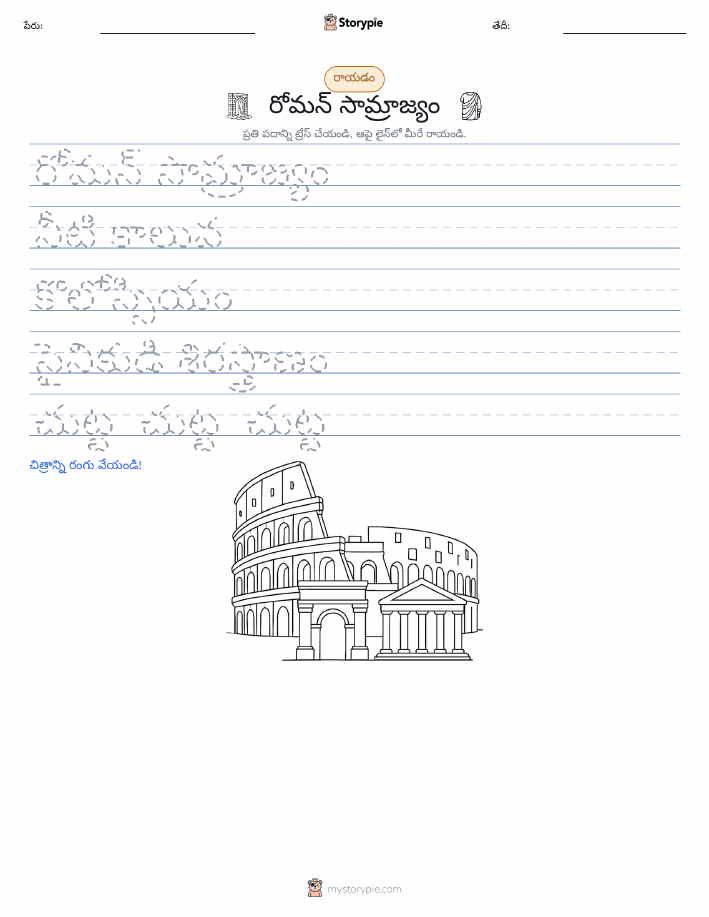 పేరు:
Storypie
తేదీ:
రాయడం
రోమన్ సామ్రాజ్యం
ప్రతి పదాన్ని ట్రేస్ చేయండి, ఆపై లైన్‌లో మీరే రాయండి.
రోమన్ సామ్రాజ్యం
నీటి కాలువ
కొలోస్సియం
సైనికుడి శిరస్త్రాణం
చుట్ట చుట్ట చుట్ట
చిత్రాన్ని రంగు వేయండి!
mystorypie.com